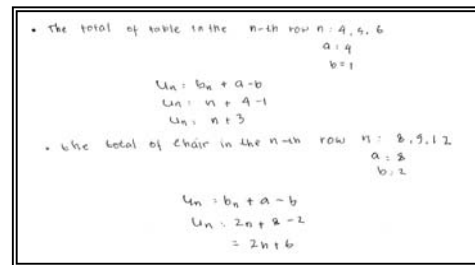 • The total of table in the n-th row n : 4, 5, 6
a : 4
b = 1
Un : bn + a - b
Un : n + 4 - 1
Un : n + 3
• the total of chair in the n-th row n : 8, 9, 12
a : 8
b : 2
Un : bn + a - b
Un : 2n + 8 - 2
= 2n + 6